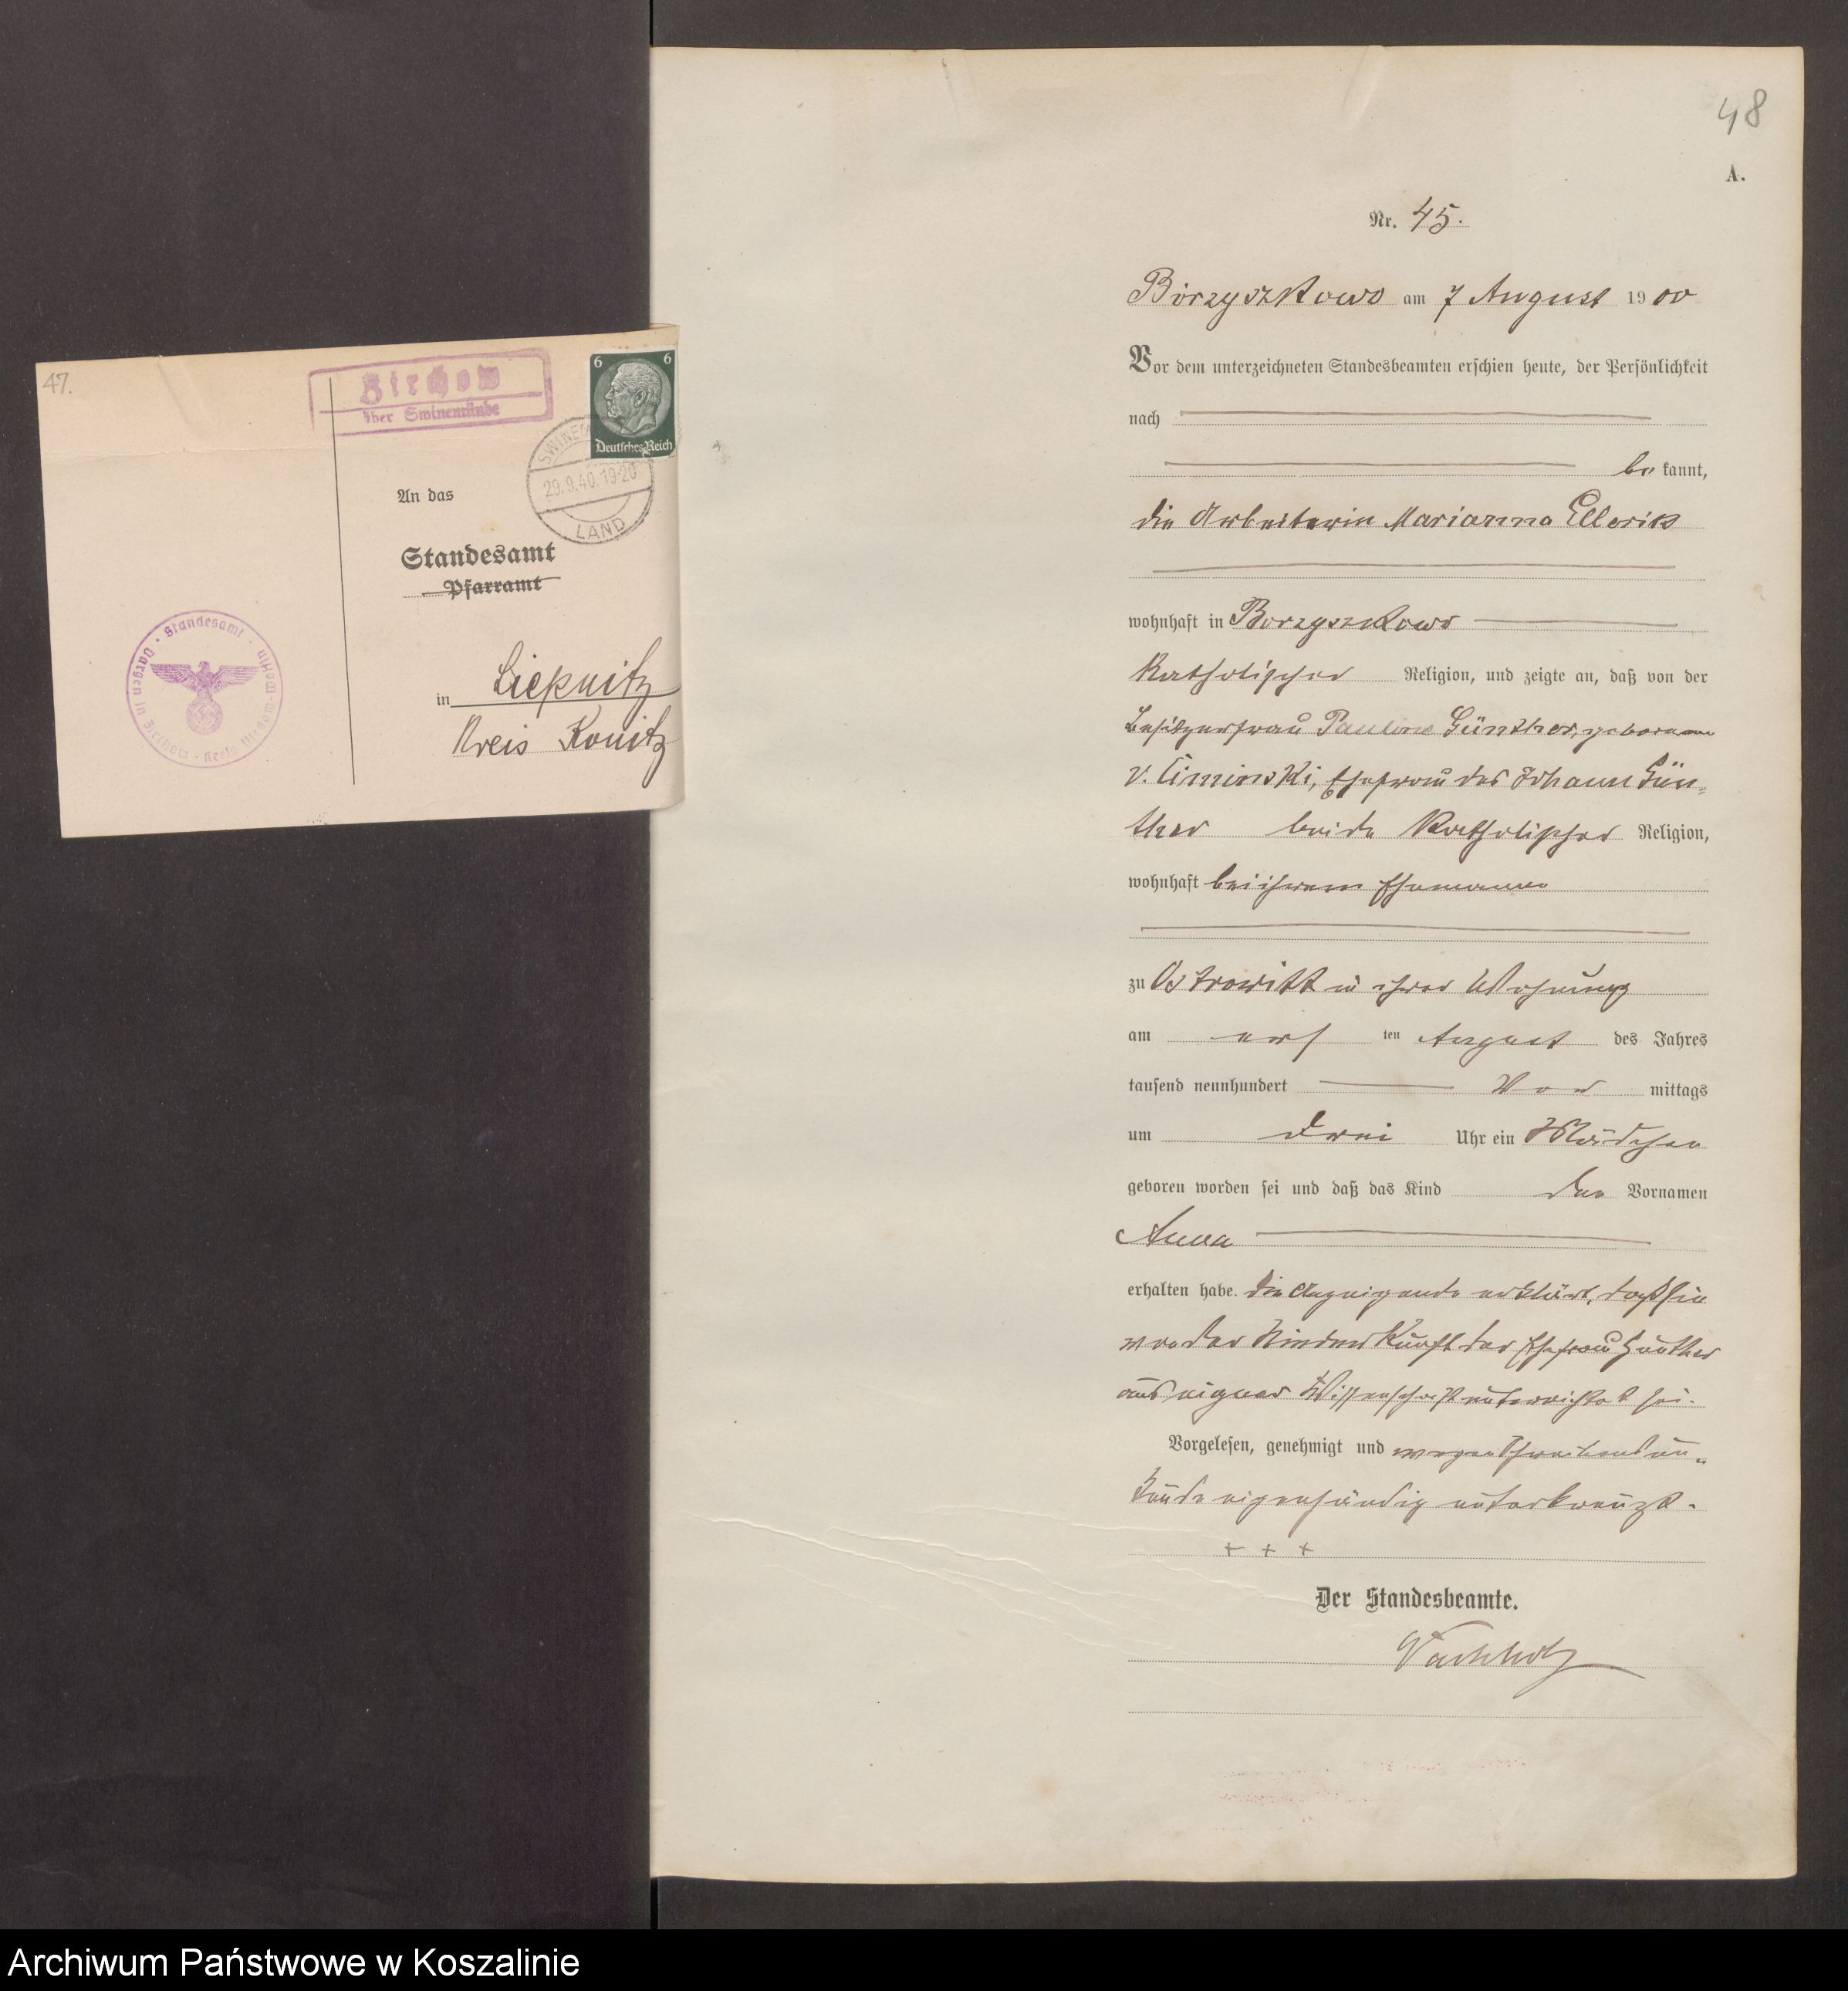 47.
Zirchow
über Swinemünde
6 6
Deutsches Reich
SWINEM
29.9.40.19-20
LAND
An das
Standesamt
Pfarramt
in Liepnitz
Kreis Konitz
Standesamt · Dargen in Zirchow · Kreis Usedom-Wollin
48
A.
Nr. 45.
Borzyszkowo am 7 August 1900
Vor dem unterzeichneten Standesbeamten erschien heute, der Persönlichkeit
nach
be kannt,
die Arbeiterin Marianna Ellerik
wohnhaft in Borzyszkowo
katholischer Religion, und zeigte an, daß von der
Besitzerfrau Pauline Günther, geborene
v. Ciminski, Ehefrau des Johann Gün-
ther beide katholischer Religion,
wohnhaft bei ihrem Ehemanne
zu Ostrowitt in ihrer Wohnung
am ersten August des Jahres
tausend neunhundert Vor mittags
um drei Uhr ein Mädchen
geboren worden sei und daß das Kind den Vornamen
Anna
erhalten habe. Die Anzeigende erklärt, daß sie
von der Niederkunft der Ehefrau Günther
aus eigner Wissenschaft unterrichtet sei.
Vorgelesen, genehmigt und wegen Schreibensun-
kunde eigenhändig unterkreuzt.
+ + +
Der Standesbeamte.
Archiwum Państwowe w Koszalinie